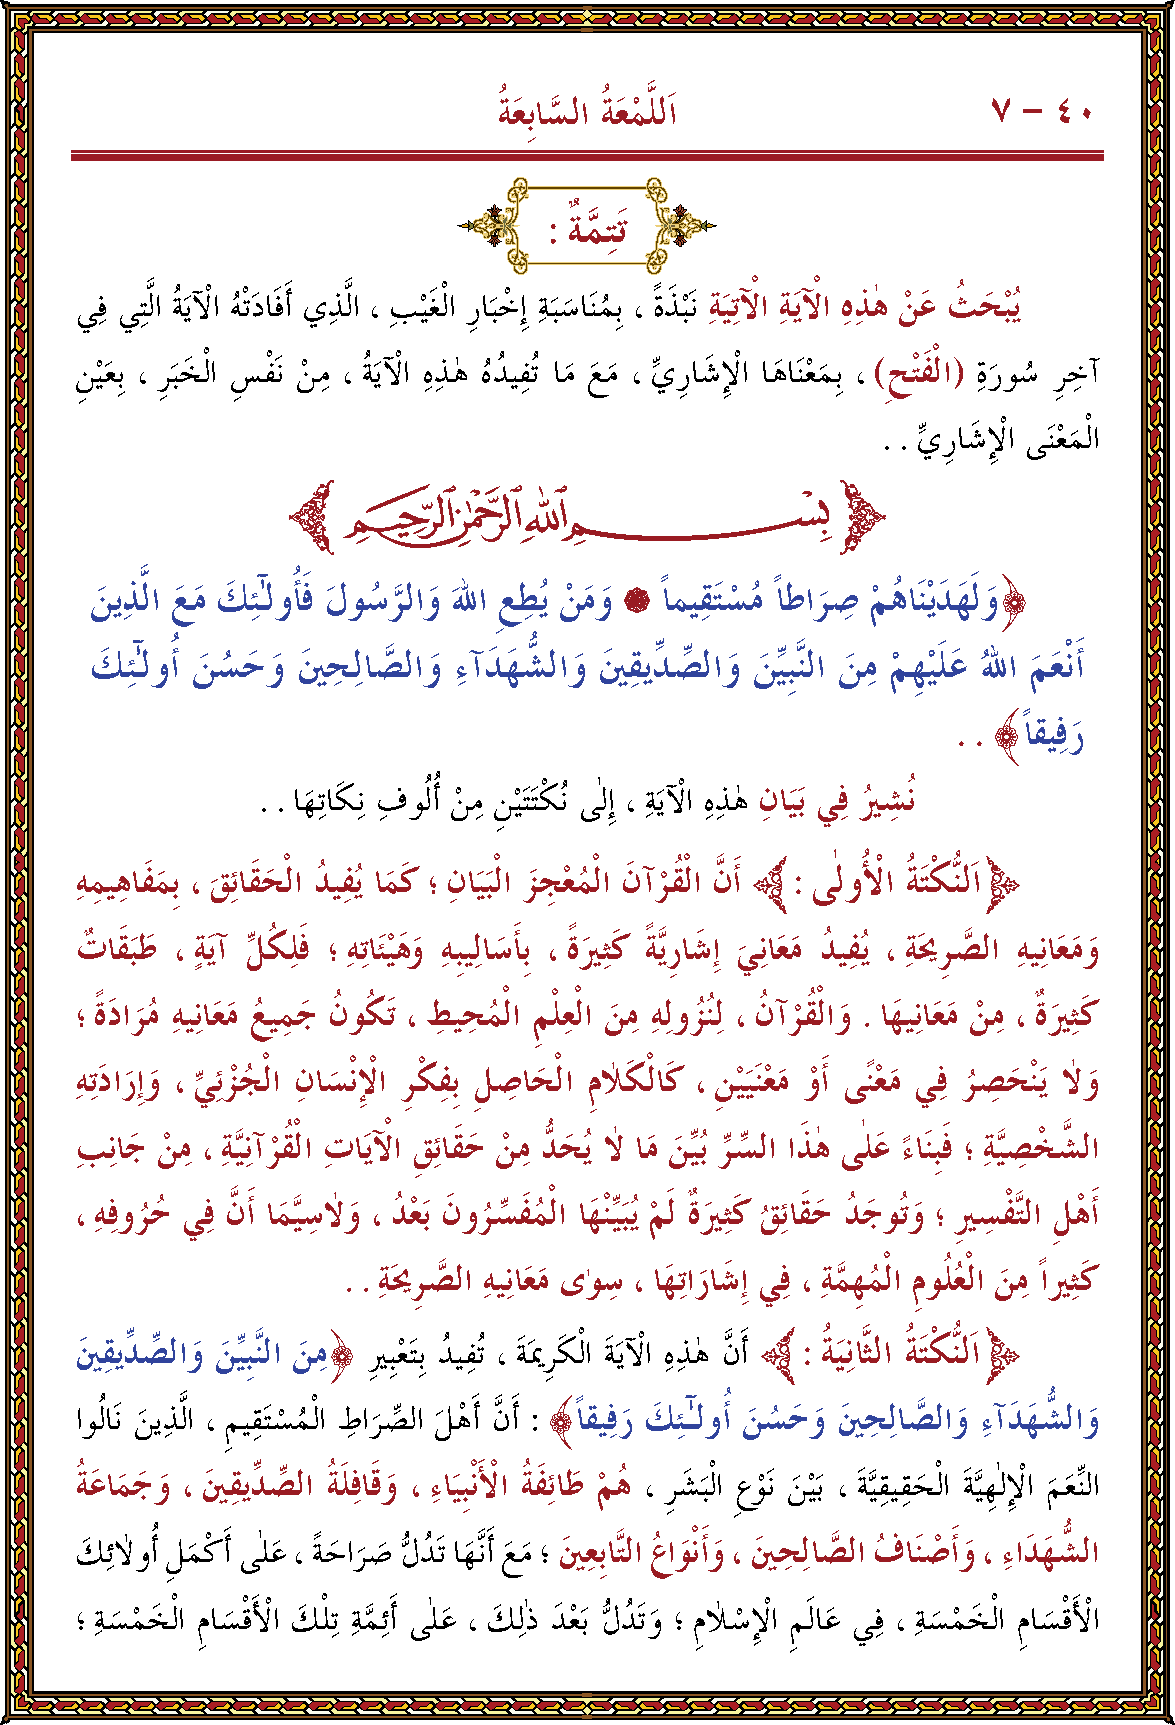 ٤٠ – ٧ اَللَّمْعَةُ السَّابِعَةُ
تَتِمَّةٌ :
يُبْحَثُ عَنْ هٰذِهِ الْآيَةِ الْآتِيَةِ نَبْذَةً ، بِمُنَاسَبَةِ إِخْبَارِ الْغَيْبِ ، الَّذِي أَفَادَتْهُ الْآيَةُ الَّتِي فِي
آخِرِ سُورَةِ (الْفَتْحِ) ، بِمَعْنَاهَا الْإِشَارِيِّ ، مَعَ مَا تُفِيدُهُ هٰذِهِ الْآيَةُ ، مِنْ نَفْسِ الْخَبَرِ ، بِعَيْنِ
الْمَعْنَى الْإِشَارِيِّ . .
بِسْمِ ٱللهِ ٱلرَّحْمٰنِ ٱلرَّحِيمِ
﴿وَلَهَدَيْنَاهُمْ صِرَاطاً مُسْتَقِيماً ۞ وَمَنْ يُطِعِ اللهَ وَالرَّسُولَ فَأُولٰٓئِكَ مَعَ الَّذِينَ
أَنْعَمَ اللهُ عَلَيْهِمْ مِنَ النَّبِيِّنَ وَالصِّدِّيقِينَ وَالشُّهَدَآءِ وَالصَّالِحِينَ وَحَسُنَ أُولٰٓئِكَ
رَفِيقاً﴾ . .
نُشِيرُ فِي بَيَانِ هٰذِهِ الْآيَةِ ، إِلٰى نُكْتَتَيْنِ مِنْ أُلُوفِ نِكَاتِهَا . .
﴿اَلنُّكْتَةُ الْأُولٰى : ﴾ أَنَّ الْقُرْآنَ الْمُعْجِزَ الْبَيَانِ ؛ كَمَا يُفِيدُ الْحَقَائِقَ ، بِمَفَاهِيمِهِ
وَمَعَانِيهِ الصَّرِيحَةِ ، يُفِيدُ مَعَانِيَ إِشَارِيَّةً كَثِيرَةً ، بِأَسَالِيبِهِ وَهَيْئَاتِهِ ؛ فَلِكُلِّ آيَةٍ ، طَبَقَاتٌ
كَثِيرَةٌ ، مِنْ مَعَانِيهَا . وَالْقُرْآنُ ، لِنُزُولِهِ مِنَ الْعِلْمِ الْمُحِيطِ ، تَكُونُ جَمِيعُ مَعَانِيهِ مُرَادَةً ؛
وَلَا يَنْحَصِرُ فِي مَعْنًى أَوْ مَعْنَيَيْنِ ، كَالْكَلَامِ الْحَاصِلِ بِفِكْرِ الْإِنْسَانِ الْجُزْئِيِّ ، وَإِرَادَتِهِ
الشَّخْصِيَّةِ ؛ فَبِنَاءً عَلٰى هٰذَا السِّرِّ بُيِّنَ مَا لَا يُحَدُّ مِنْ حَقَائِقِ الْآيَاتِ الْقُرْآنِيَّةِ ، مِنْ جَانِبِ
أَهْلِ التَّفْسِيرِ ؛ وَتُوجَدُ حَقَائِقُ كَثِيرَةٌ لَمْ يُبَيِّنْهَا الْمُفَسِّرُونَ بَعْدُ ، وَلَاسِيَّمَا أَنَّ فِي حُرُوفِهِ ،
كَثِيراً مِنَ الْعُلُومِ الْمُهِمَّةِ ، فِي إِشَارَاتِهَا ، سِوٰى مَعَانِيهِ الصَّرِيحَةِ . .
﴿اَلنُّكْتَةُ الثَّانِيَةُ : ﴾ أَنَّ هٰذِهِ الْآيَةَ الْكَرِيمَةَ ، تُفِيدُ بِتَعْبِيرِ ﴿مِنَ النَّبِيِّنَ وَالصِّدِّيقِينَ
وَالشُّهَدَآءِ وَالصَّالِحِينَ وَحَسُنَ أُولٰٓئِكَ رَفِيقاً﴾ : أَنَّ أَهْلَ الصِّرَاطِ الْمُسْتَقِيمِ ، الَّذِينَ نَالُوا
النِّعَمَ الْإِلٰهِيَّةَ الْحَقِيقِيَّةَ ، بَيْنَ نَوْعِ الْبَشَرِ ، هُمْ طَائِفَةُ الْأَنْبِيَاءِ ، وَقَافِلَةُ الصِّدِّيقِينَ ، وَجَمَاعَةُ
الشُّهَدَاءِ ، وَأَصْنَافُ الصَّالِحِينَ ، وَأَنْوَاعُ التَّابِعِينَ ؛ مَعَ أَنَّهَا تَدُلُّ صَرَاحَةً ، عَلٰى أَكْمَلِ أُولَائِكَ
الْأَقْسَامِ الْخَمْسَةِ ، فِي عَالَمِ الْإِسْلَامِ ؛ وَتَدُلُّ بَعْدَ ذٰلِكَ ، عَلٰى أَئِمَّةِ تِلْكَ الْأَقْسَامِ الْخَمْسَةِ ؛